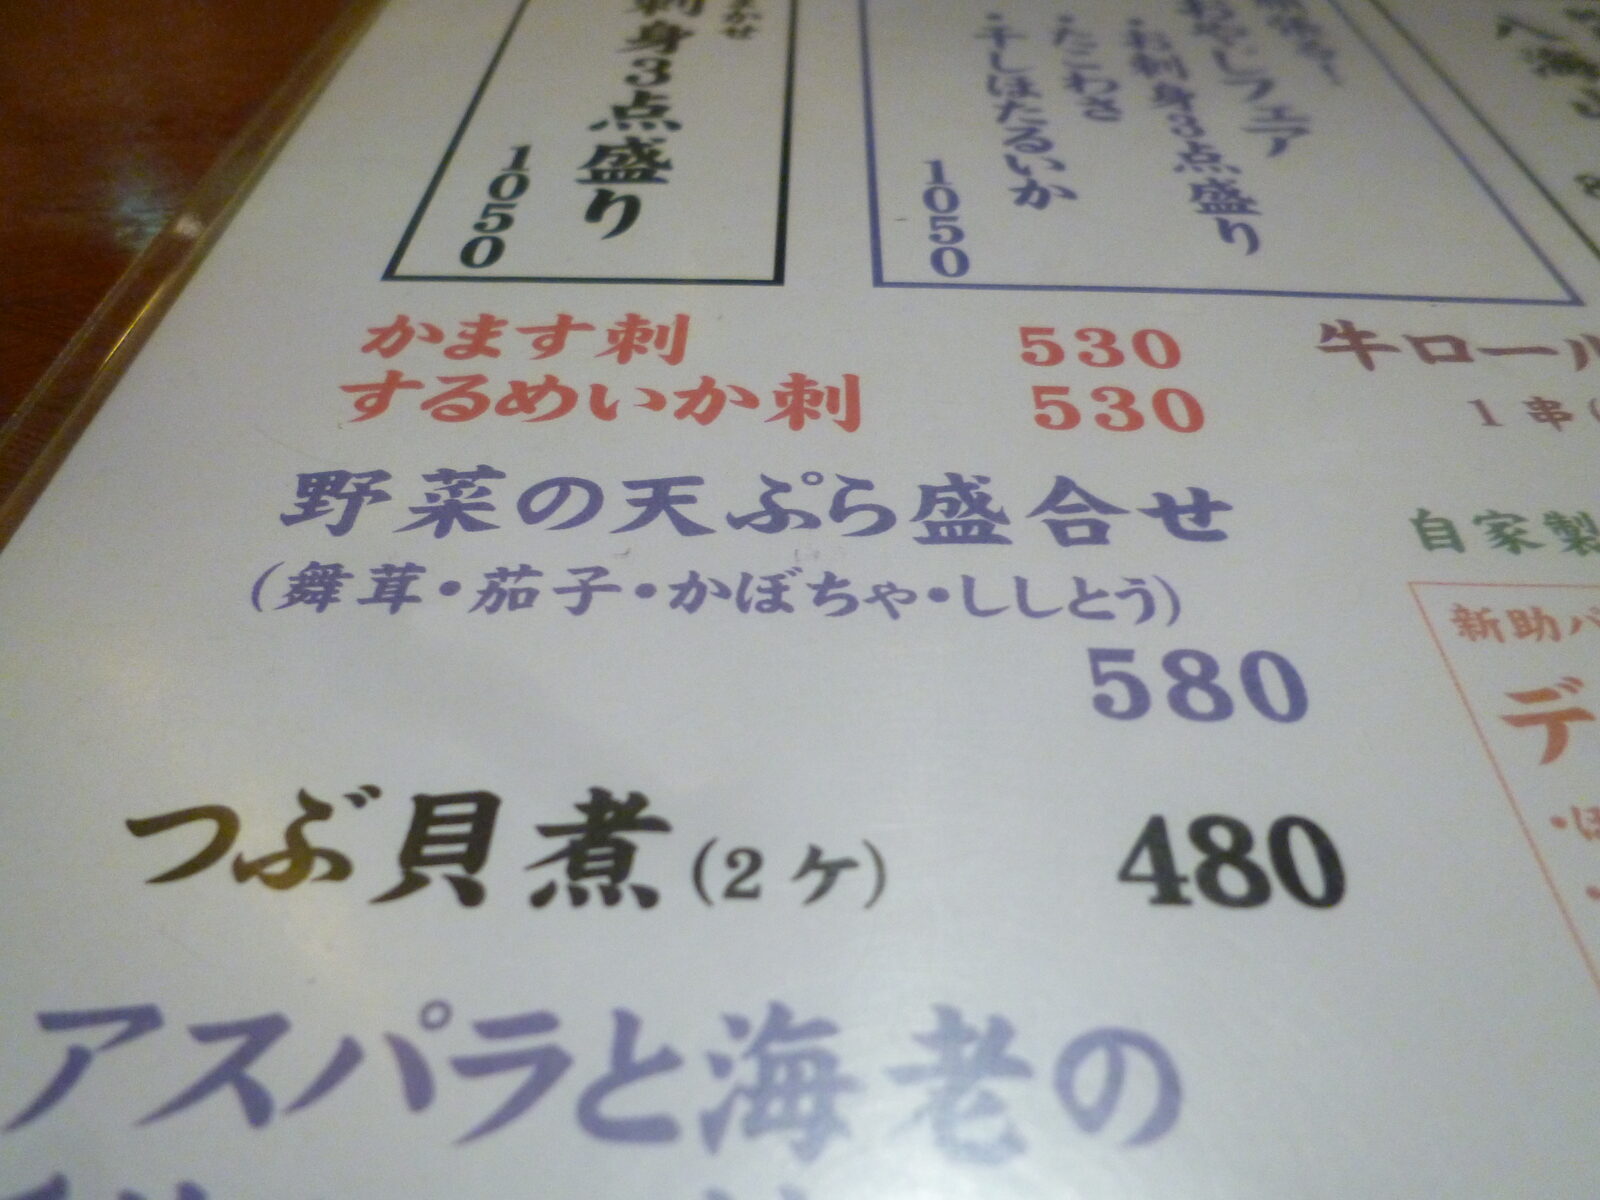 刺身3点盛り
1050
おやじフェア
・お刺身3点盛り
・たこわさ
・干しほたるいか
1050
かます刺 530
するめいか刺 530
野菜の天ぷら盛合せ
(舞茸・茄子・かぼちゃ・ししとう)
580
つぶ貝煮(2ヶ) 480
アスパラと海老の
牛ロール
1串(
自家製
新助パ
デ